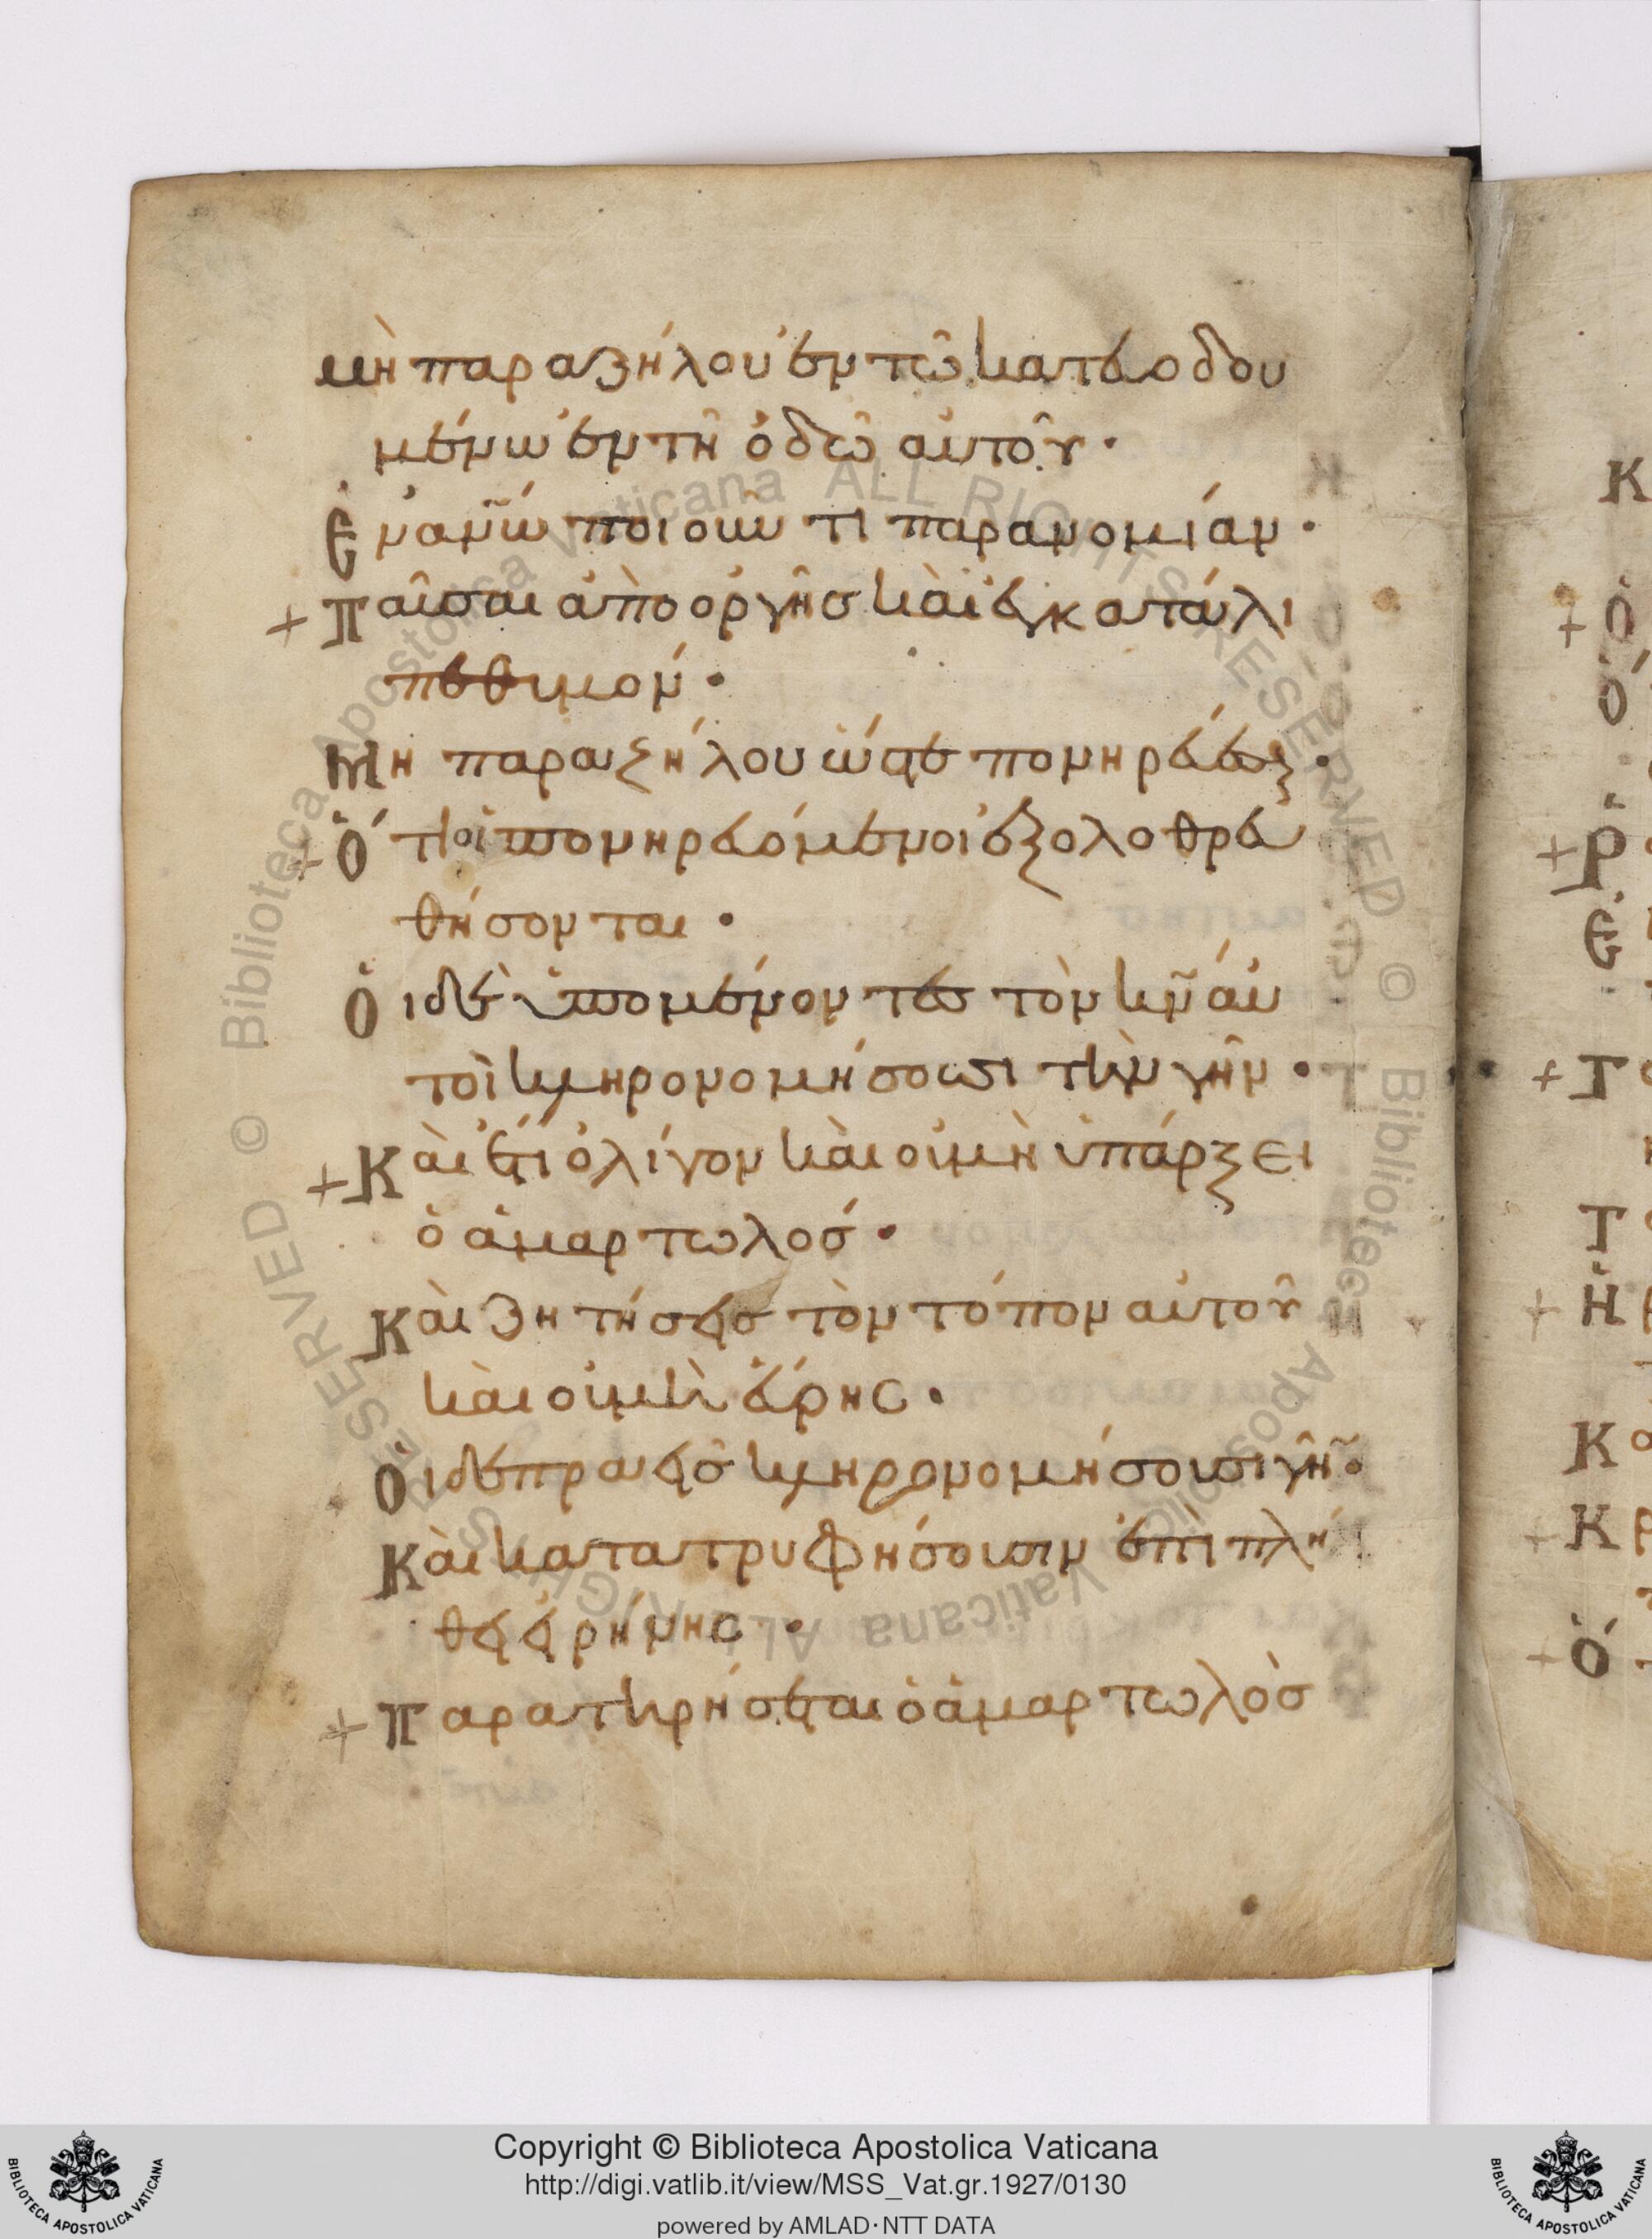 μὴ παραζήλου ἐν τῶ κατευοδου
μένω ἐν τῆ ὁδῶ αὐτοῦ·
Ἐν ἀν̅ω ποιουν τι παρανομίαν·
+ Παῦσαι ἀπὸ ὀργῆσ καὶ ἐγκατάλι
πε θυμόν·
Μη παραζήλου ὥστε πονηρεύεσθαι·
+ Ὅτι οἱ πονηρευόμενοι ἐξολοθρευ
θήσονται·
Ὁι δὲ ὑπομένοντεσ τὸν κν̅ αὐ
τοὶ κληρονομήσουσι τὴν γῆν·
+ Καὶ ἔτι ὀλίγον καὶ οὐ μὴ ὑπάρξει
ὁ ἁμαρτωλοσ·
Καὶ ζητήσεισ τὸν τόπον αὐτοῦ
καὶ οὐ μὴ εὕρησ·
Ὁι δὲ πραεῖσ κληρονομήσουσι γῆν·
Καὶ κατατρυφήσουσιν ἐπὶ πλή
θει εἰρήνησ·
+ Παρατηρήσεται ὁ ἁμαρτωλὸσ
Κ
+ Ὁ
Ὁ
+ Ρ
Ἐ
+ Τ
Τ
+ Ἡ
Κ
+ Κ
+ Ὁ
© Biblioteca Apostolica Vaticana ALL RIGHTS RESERVED © Biblioteca Apostolica Vaticana ALL RIGHTS RESERVED
BIBLIOTECA APOSTOLICA VATICANA
Copyright © Biblioteca Apostolica Vaticana
http://digi.vatlib.it/view/MSS_Vat.gr.1927/0130
powered by AMLAD·NTT DATA
BIBLIOTECA APOSTOLICA VATICANA